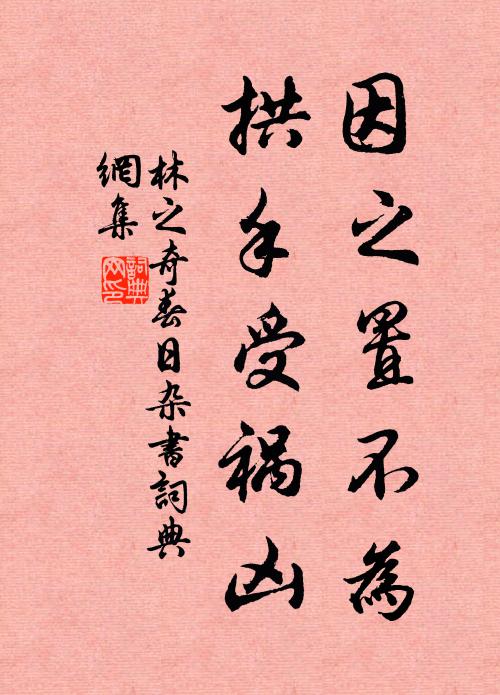 因之置不為
拱手受禍凶
林之奇春日杂書詞典
網集
詞典
网印